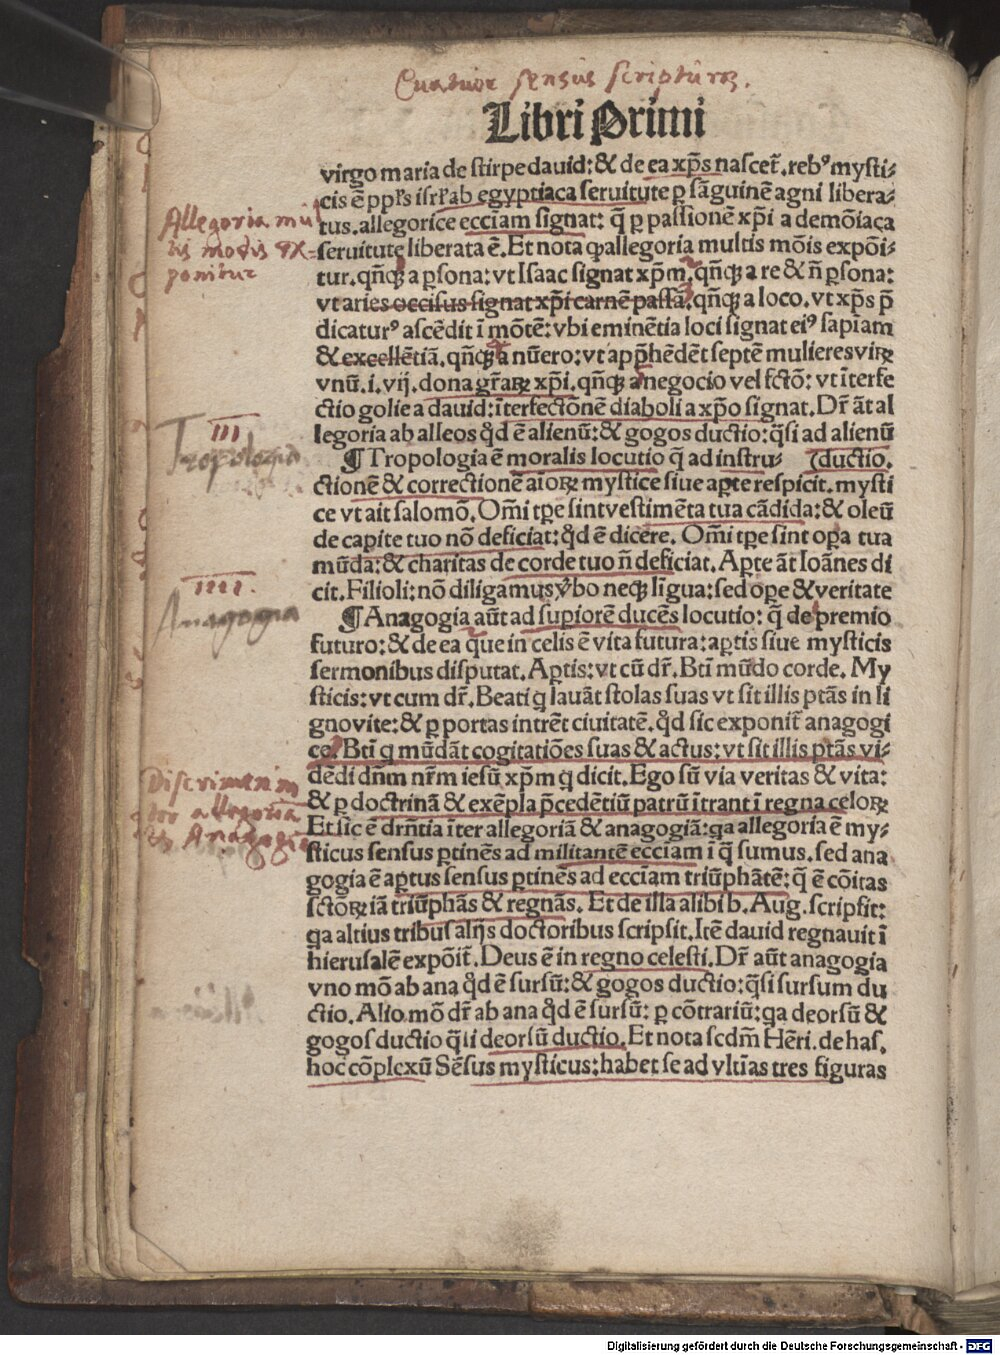 Quatuor sensus scripturæ.
Libri Primi
virgo maria de stirpe dauid: & de ea xp̄s nascet̄. reb⁹ mysti-
cis ē ppl's isrl' ab egyptiaca seruitute p̱ sāguinē agni libera-
tus. allegorice eccl̄iam signat: q̄ p̱ passionē xp̄i a demōiaca
seruitute liberata ē. Et nota ꝙ allegoria multis mōis expōi-
tur. qn̄qꝫ a p̱sona: vt Isaac signat xp̄m. qn̄qꝫ a re & n̄ p̱sona:
vt aries occisus signat xp̄i carnē passā. qn̄qꝫ a loco. vt xp̄s p̄
dicatur⁹ ascēdit ī mōtē: vbi eminētia loci signat ei⁹ sapīam
& excellētiā. qn̄qꝫ a nūero: vt app̄hēdēt septē mulieres viꝝ
vnū. i. vij. dona gr̄aꝝ xp̄i. qn̄qꝫ a negocio vel fctō: vt īterfe
ctio golie a dauid: īterfectōnē diaboli a xp̄o signat. Dr̄ āt al
legoria ab alleos qd̄ ē alienū: & gogos ductio: q̄si ad alienū
¶ Tropologia ē moralis locutio q̄ ad instru- (ductio.
ctionē & correctionē aīoꝝ mystice siue ap̱te respicit. mysti
ce vt ait salomō. Om̄i tp̱e sint vestimēta tua cādida: & oleū
de capite tuo nō deficiat: qd̄ ē dicere. Om̄i tp̱e sint op̱a tua
mūda: & charitas de corde tuo n̄ deficiat. Ap̱te āt Ioānes di
cit. Filioli: nō diligamus v̄bo neqꝫ līgua: sed op̱e & veritate
¶ Anagogia aūt ad sup̱iorē ducēs locutio: q̄ de premio
futuro: & de ea que in celis ē vita futura: ap̱tis siue mysticis
sermonibus disputat. Ap̱tis: vt cū dr̄. Bt̄i mūdo corde. My
sticis: vt cum dr̄. Beati q̄ lauāt stolas suas vt sit illis ptās in li
gno vite: & p̱ portas intrēt ciuitatē. qd̄ sic exponit̄ anagogi
ce. Bt̄i q̄ mūdāt cogitatiōes suas & actus: vt sit illis ptās vi-
dēdi dn̄m nr̄m iesū xp̄m q̄ dicit. Ego sū via veritas & vita:
& p̱ doctrinā & exēpla p̄cedētiū patrū ītrant ī regna celoꝝ
Et sic ē drn̄tia īter allegoriā & anagogiā: qa allegoria ē my-
sticus sensus p̱tinēs ad militantē eccl̄iam ī q̄ sumus. sed ana
gogia ē ap̱tus sensus p̱tinēs ad eccl̄iam triūphātē: q̄ ē cōitas
sctōꝝ iā triūphās & regnās. Et de illa alibi b. Aug. scripsit:
qa altius tribus alijs doctoribus scripsit. Itē dauid regnauit ī
hierusalē expōit̄. Deus ē in regno celesti. Dr̄ aūt anagogia
vno mō ab ana qd̄ ē sursū: & gogos ductio: q̄si sursum du
ctio. Alio mō dr̄ ab ana qd̄ ē sursū: p̱ cōtrariū: qa deorsū &
gogos ductio q̄si deorsū ductio. Et nota scdm̄ Hēri. de has.
hoc cōplexū Sēsus mysticus: habet se ad vltīas tres figuras
Allegoria mul
tis modis ex-
ponitur
III
Tropologia
IIII.
Anagogia
Discrimen in
ter allegoriā
et Anagogiā
Digitalisierung gefördert durch die Deutsche Forschungsgemeinschaft - DFG